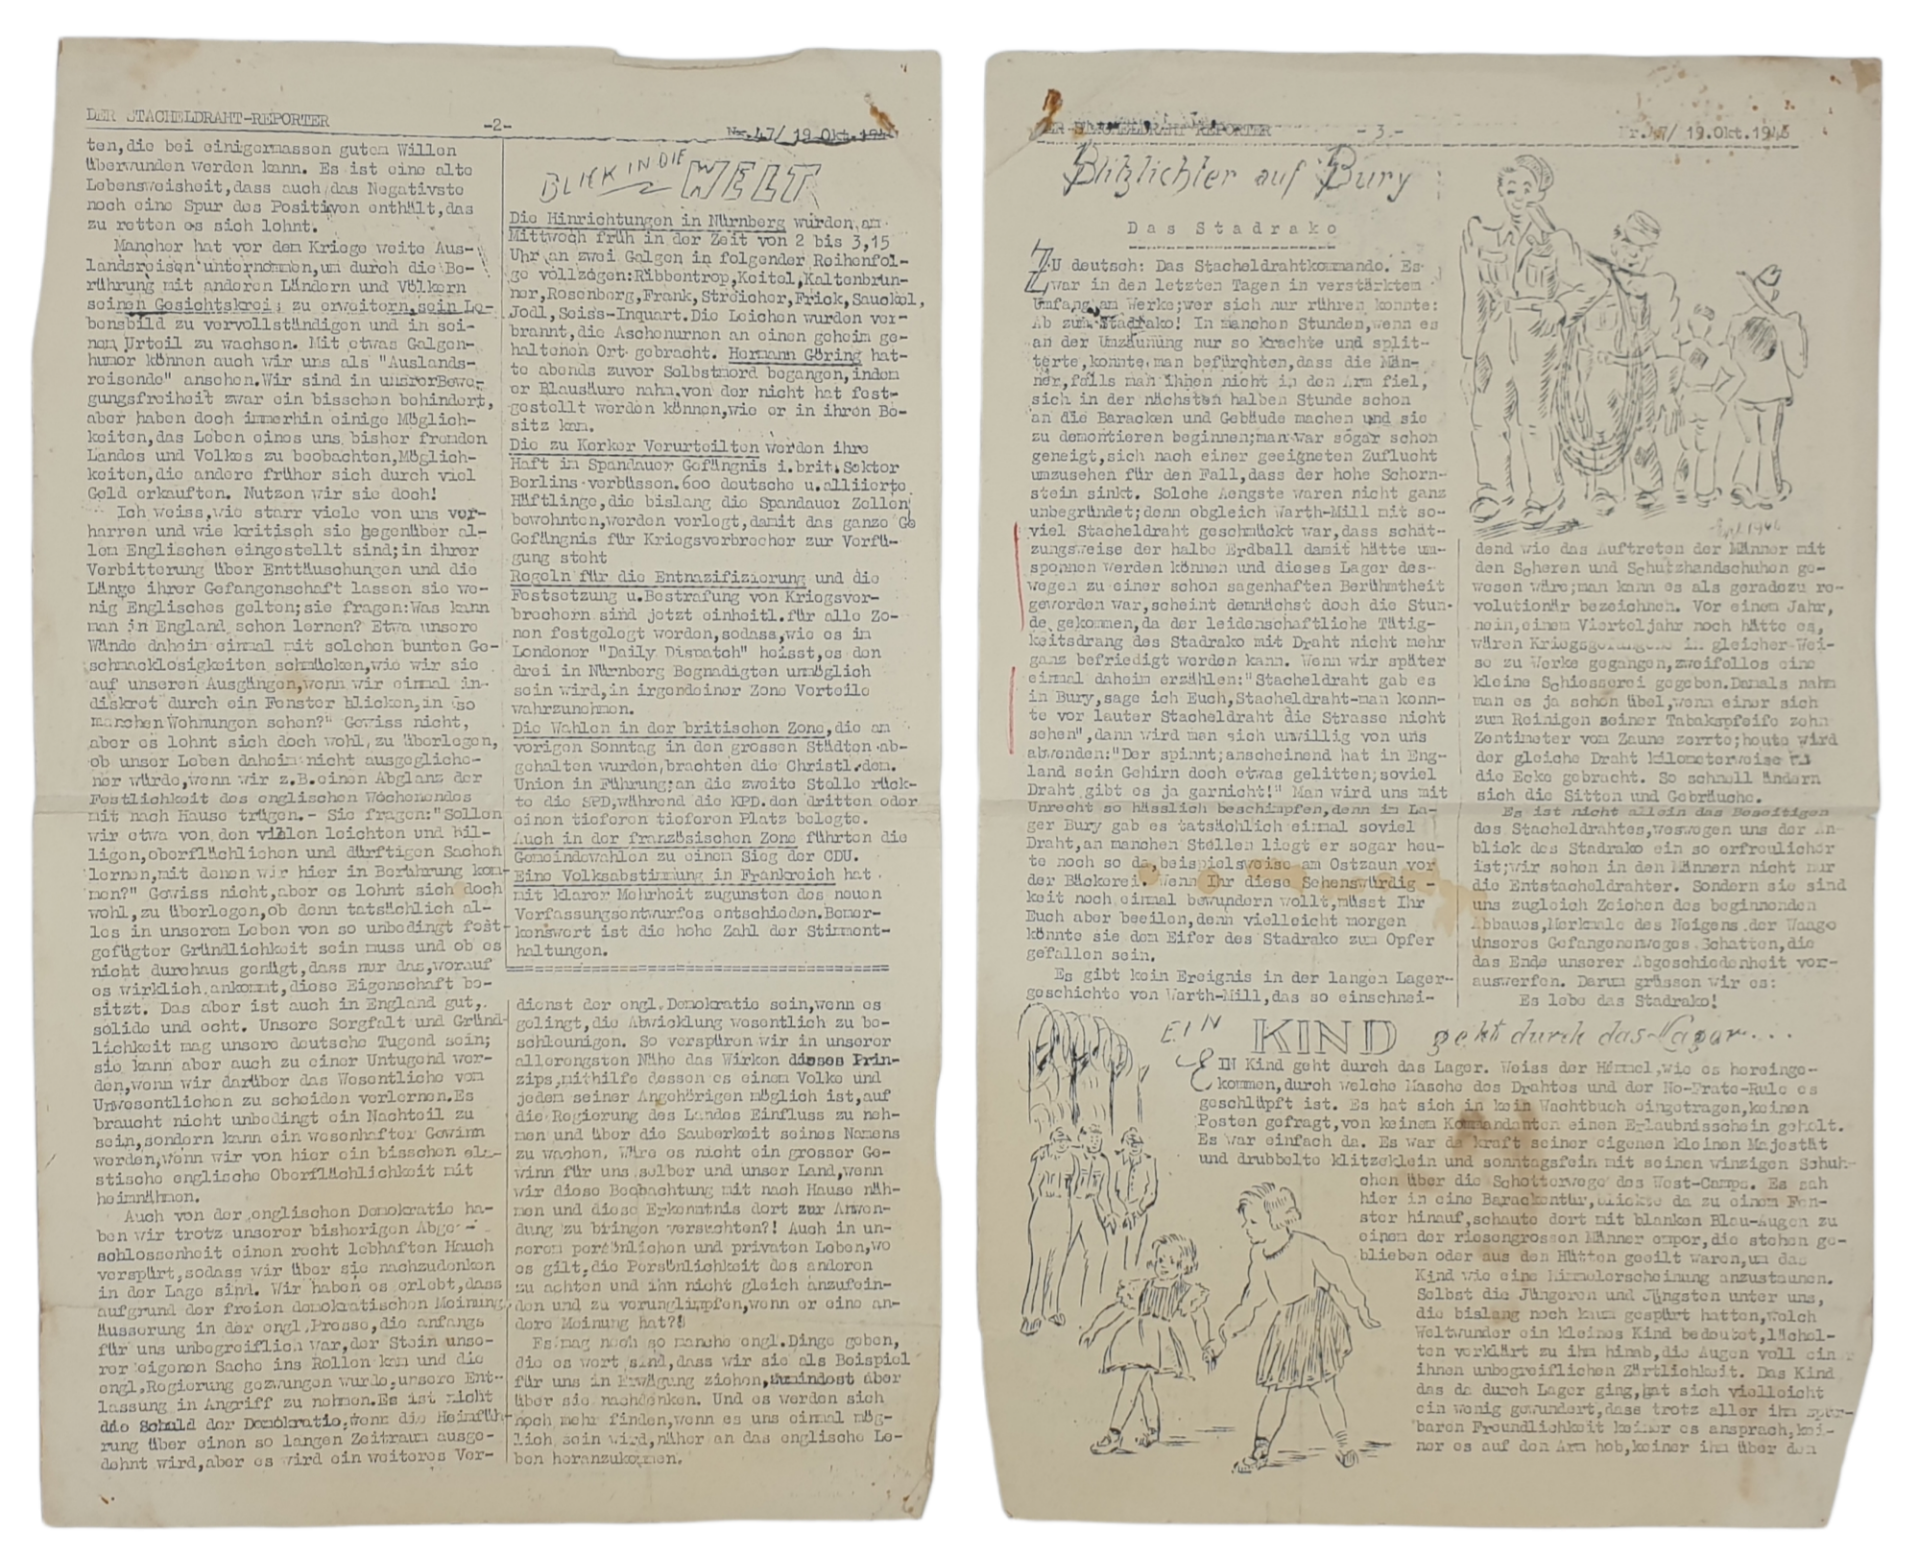 DER STACHELDRAHT-REPORTER
-2-
Nr.47/ 19.Okt.1946
ten,die bei einigermassen gutem Willen
überwunden werden kann. Es ist eine alte
Lebensweisheit,dass auch das Negativste
noch eine Spur des Positiven enthält,das
zu retten es sich lohnt.
Mancher hat vor dem Kriege weite Aus-
landsreisen unternommen,um durch die Be-
rührung mit anderen Ländern und Völkern
seinen Gesichtskreis zu erweitern,sein Le-
bensbild zu vervollständigen und in sei-
nem Urteil zu wachsen. Mit etwas Galgen-
humor können auch wir uns als "Auslands-
reisende" ansehen.Wir sind in unsrerBewe-
gungsfreiheit zwar ein bisschen behindert,
aber haben doch immerhin einige Möglich-
keiten,das Leben eines uns bisher fremden
Landes und Volkes zu beobachten,Möglich-
keiten,die andere früher sich durch viel
Geld erkauften. Nutzen wir sie doch!
Ich weiss,wie starr viele von uns ver-
harren und wie kritisch sie gegenüber al-
lem Englischen eingestellt sind;in ihrer
Verbitterung über Enttäuschungen und die
Länge ihrer Gefangenschaft lassen sie we-
nig Englisches gelten;sie fragen:Was kann
man in England schon lernen? Etwa unsere
Wände daheim einmal mit solchen bunten Ge-
schmacklosigkeiten schmücken,wie wir sie
auf unseren Ausgängen,wenn wir einmal in-
diskret durch ein Fenster blicken,in so
manchen Wohnungen sehen?" Gewiss nicht,
aber es lohnt sich doch wohl,zu überlegen,
ob unser Leben daheim nicht ausgegliche-
ner würde,wenn wir z.B.einen Abglanz der
Festlichkeit des englischen Wochenendes
mit nach Hause trügen.- Sie fragen:"Sollen
wir etwa von den vielen leichten und bil-
ligen,oberflächlichen und dürftigen Sachen
lernen,mit denen wir hier in Berührung kom-
men?" Gewiss nicht,aber es lohnt sich doch
wohl,zu überlegen,ob denn tatsächlich al-
les in unserem Leben von so unbedingt fest-
gefügter Gründlichkeit sein muss und ob es
nicht durchaus genügt,dass nur das,worauf
es wirklich ankommt,diese Eigenschaft be-
sitzt. Das aber ist auch in England gut,
solide und echt. Unsere Sorgfalt und Gründ-
lichkeit mag unsere deutsche Tugend sein;
sie kann aber auch zu einer Untugend wer-
den,wenn wir darüber das Wesentliche vom
Unwesentlichen zu scheiden verlernen.Es
braucht nicht unbedingt ein Nachteil zu
sein,sondern kann ein wesenhafter Gewinn
werden,wenn wir von hier ein bisschen ela-
stische englische Oberflächlichkeit mit
heimnähmen.
Auch von der englischen Demokratie ha-
ben wir trotz unserer bisherigen Abge-
schlossenheit einen recht lebhaften Hauch
verspürt,sodass wir über sie nachzudenken
in der Lage sind. Wir haben es erlebt,dass
aufgrund der freien demokratischen Meinungs
äusserung in der engl.Presse,die anfangs
für uns unbegreiflich war,der Stein unse-
rer eigenen Sache ins Rollen kam und die
engl.Regierung gezwungen wurde,unsere Ent-
lassung in Angriff zu nehmen.Es ist nicht
die Schuld der Demokratie,wenn die Heimfüh-
rung über einen so langen Zeitraum ausge-
dehnt wird,aber es wird ein weiteres Ver-
BLICK IN DIE WELT
Die Hinrichtungen in Nürnberg wurden am
Mittwoch früh in der Zeit von 2 bis 3,15
Uhr an zwei Galgen in folgender Reihenfol-
ge vollzogen:Ribbentrop,Keitel,Kaltenbrun-
ner,Rosenberg,Frank,Streicher,Frick,Sauckel,
Jodl,Seiss-Inquart.Die Leichen wurden ver-
brannt,die Aschenurnen an einen geheim ge-
haltenen Ort gebracht. Hermann Göring hat-
te abends zuvor Selbstmord begangen,indem
er Blausäure nahm.von der nicht hat fest-
gestellt werden können,wie er in ihren Be-
sitz kam.
Die zu Kerker Verurteilten werden ihre
Haft im Spandauer Gefängnis i.brit.Sektor
Berlins verbüssen.600 deutsche u.alliierte
Häftlinge,die bislang die Spandauer Zellen
bewohnten,werden verlegt,damit das ganze Ge
Gefängnis für Kriegsverbrecher zur Verfü-
gung steht
Regeln für die Entnazifizierung und die
Festsetzung u.Bestrafung von Kriegsver-
brechern sind jetzt einheitl.für alle Zo-
nen festgelegt worden,sodass,wie es im
Londoner "Daily Dispatch" heisst,es den
drei in Nürnberg Begnadigten unmöglich
sein wird,in irgendeiner Zone Vorteile
wahrzunehmen.
Die Wahlen in der britischen Zone,die am
vorigen Sonntag in den grossen Städten ab-
gehalten wurden,brachten die Christl.dem.
Union in Führung;an die zweite Stelle rück-
te die SPD,während die KPD.den dritten oder
einen tieferen tieferen Platz belegte.
Auch in der französischen Zone führten die
Gemeindewahlen zu einem Sieg der CDU.
Eine Volksabstimmung in Frankreich hat
mit klarer Mehrheit zugunsten des neuen
Verfassungsentwurfes entschieden.Bemer-
kenswert ist die hohe Zahl der Stimment-
haltungen.
dienst der engl.Demokratie sein,wenn es
gelingt,die Abwicklung wesentlich zu be-
schleunigen. So verspüren wir in unserer
allerengsten Nähe das Wirken dieses Prin-
zips,mithilfe dessen es einem Volke und
jedem seiner Angehörigen möglich ist,auf
die Regierung des Landes Einfluss zu neh-
men und über die Sauberkeit seines Namens
zu wachen. Wäre es nicht ein grosser Ge-
winn für uns selber und unser Land,wenn
wir diese Beobachtung mit nach Hause näh-
men und diese Erkenntnis dort zur Anwen-
dung zu bringen versuchten?! Auch in un-
serem persönlichen und privaten Leben,wo
es gilt,die Persönlichkeit des anderen
zu achten und ihn nicht gleich anzufein-
den und zu verunglimpfen,wenn er eine an-
dere Meinung hat?!
Es mag noch so manche engl.Dinge geben,
die es wert sind,dass wir sie als Beispiel
für uns in Erwägung ziehen,zumindest über
über sie nachdenken. Und es werden sich
noch mehr finden,wenn es uns einmal mög-
lich sein wird,näher an das englische Le-
ben heranzukommen.
DER STACHELDRAHT-REPORTER
-3.-
Nr.47/ 19.Okt.1946
Blitzlichter auf Bury
Das Stadrako
ZU deutsch: Das Stacheldrahtkommando. Es
war in den letzten Tagen in verstärktem
Umfang am Werke;wer sich nur rühren konnte:
Ab zum Stadrako! In manchen Stunden,wenn es
an der Umzäunung nur so krachte und split-
terte,konnte man befürchten,dass die Män-
ner,falls man ihnen nicht in den Arm fiel,
sich in der nächsten halben Stunde schon
an die Baracken und Gebäude machen und sie
zu demontieren beginnen;man war sogar schon
geneigt,sich nach einer geeigneten Zuflucht
umzusehen für den Fall,dass der hohe Schorn-
stein sinkt. Solche Aengste waren nicht ganz
unbegründet;denn obgleich Warth-Mill mit so-
viel Stacheldraht geschmückt war,dass schät-
zungsweise der halbe Erdball damit hätte um-
sponnen werden können und dieses Lager des-
wegen zu einer schon sagenhaften Berühmtheit
geworden war,scheint demnächst doch die Stun-
de gekommen,da der leidenschaftliche Tätig-
keitsdrang des Stadrako mit Draht nicht mehr
ganz befriedigt werden kann. Wenn wir später
einmal daheim erzählen:"Stacheldraht gab es
in Bury,sage ich Euch,Stacheldraht-man konn-
te vor lauter Stacheldraht die Strasse nicht
sehen",dann wird man sich unwillig von uns
abwenden:"Der spinnt;anscheinend hat in Eng-
land sein Gehirn doch etwas gelitten;soviel
Draht gibt es ja garnicht!" Man wird uns mit
Unrecht so hässlich beschimpfen,denn im La-
ger Bury gab es tatsächlich einmal soviel
Draht,an manchen Stellen liegt er sogar heu-
te noch so da,beispielsweise am Ostzaun vor
der Bäckerei. Wenn Ihr diese Sehenswürdig -
keit noch einmal bewundern wollt,müsst Ihr
Euch aber beeilen,denn vielleicht morgen
könnte sie dem Eifer des Stadrako zum Opfer
gefallen sein.
Es gibt kein Ereignis in der langen Lager-
geschichte von Warth-Mill,das so einschnei-
1946
dend wie das Auftreten der Männer mit
den Scheren und Schutzhandschuhen ge-
wesen wäre;man kann es als geradezu re-
volutionär bezeichnen. Vor einem Jahr,
nein,einem Vierteljahr noch hätte es,
wären Kriegsgefangene in gleicher Wei-
se zu Werke gegangen,zweifellos eine
kleine Schiesserei gegeben.Damals nahm
man es ja schon übel,wenn einer sich
zum Reinigen seiner Tabakspfeife zehn
Zentimeter vom Zaune zerrte;heute wird
der gleiche Draht kilometerweise in
die Ecke gebracht. So schnell ändern
sich die Sitten und Gebräuche.
Es ist nicht allein das Beseitigen
des Stacheldrahtes,weswegen uns der An-
blick des Stadrako ein so erfreulicher
ist;wir sehen in den Männern nicht nur
die Entstacheldrahter. Sondern sie sind
uns zugleich Zeichen des beginnenden
Abbaues,Merkmale des Neigens der Waage
unseres Gefangenenweges.Schatten,die
das Ende unserer Abgeschiedenheit vor-
auswerfen. Darum grüssen wir es:
Es lebe das Stadrako!
EIN KIND geht durch das Lager...
EIN Kind geht durch das Lager. Weiss der Himmel,wie es hereinge-
kommen,durch welche Masche des Drahtes und der No-Frate-Rule es
geschlüpft ist. Es hat sich in kein Wachtbuch eingetragen,keinen
Posten gefragt,von keinem Kommandanten einen Erlaubnisschein geholt.
Es war einfach da. Es war da kraft seiner eigenen kleinen Majestät
und drubbelte klitzeklein und sonntagsfein mit seinen winzigen Schuh-
chen über die Schotterwege des West-Camps. Es sah
hier in eine Barackentür,blickte da zu einem Fen-
ster hinauf,schaute dort mit blanken Blau-Augen zu
einem der riesengrossen Männer empor,die stehen ge-
blieben oder aus den Hütten geeilt waren,um das
Kind wie eine Himmelerscheinung anzustaunen.
Selbst die Jüngeren und Jüngsten unter uns,
die bislang noch kaum gespürt hatten,welch
Weltwunder ein kleines Kind bedeutet,lächel-
ten verklärt zu ihm hinab,die Augen voll einer
ihnen unbegreiflichen Zärtlichkeit. Das Kind
das da durch Lager ging,hat sich vielleicht
ein wenig gewundert,dass trotz aller ihm spür-
baren Freundlichkeit keiner es ansprach,kei-
ner es auf den Arm hob,keiner ihm über den